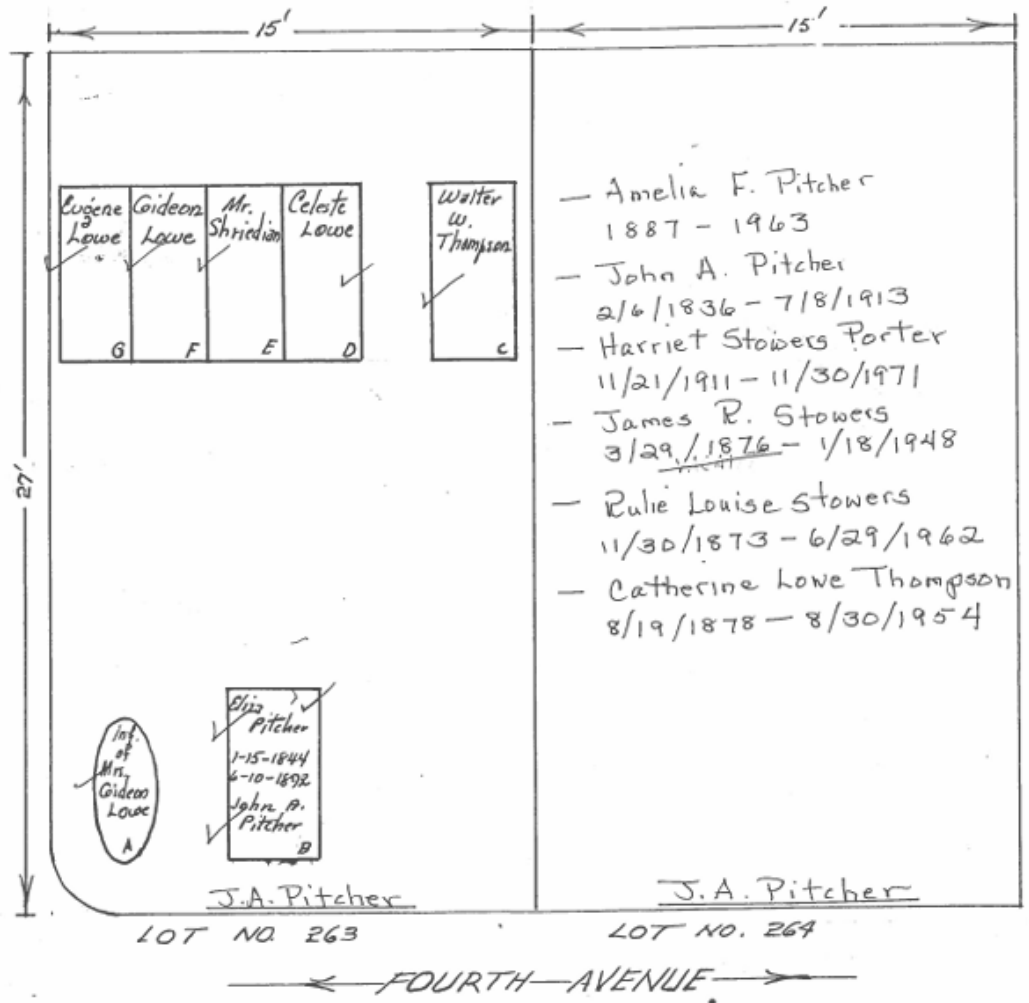 15'
15'
27'
Eugene
Lowe
G
Gideon
Lowe
F
Mr.
Shriedian
E
Celeste
Lowe
D
Walter
W.
Thompson
C
— Amelia F. Pitcher
1887 - 1963
— John A. Pitcher
2/6/1836 - 7/8/1913
— Harriet Stowers Porter
11/21/1911 - 11/30/1971
— James R. Stowers
3/29/1876 - 1/18/1948
— Rulie Louise Stowers
11/30/1873 - 6/29/1962
— Catherine Lowe Thompson
8/19/1878 - 8/30/1954
Inf.
of
Mrs.
Gideon
Lowe
A
Eliza
Pitcher
1-15-1844
6-10-1892
John A.
Pitcher
B
J.A. Pitcher
J.A. Pitcher
LOT NO. 263
LOT NO. 264
FOURTH AVENUE